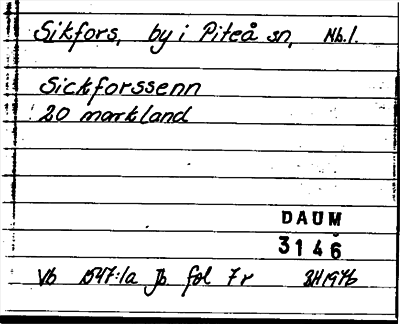 Sikfors, by i Piteå sn, Nb.l.
Sickforssenn
20 markland
DAUM
3146
Vb 1547:1a Jb fol 7r BH 1976